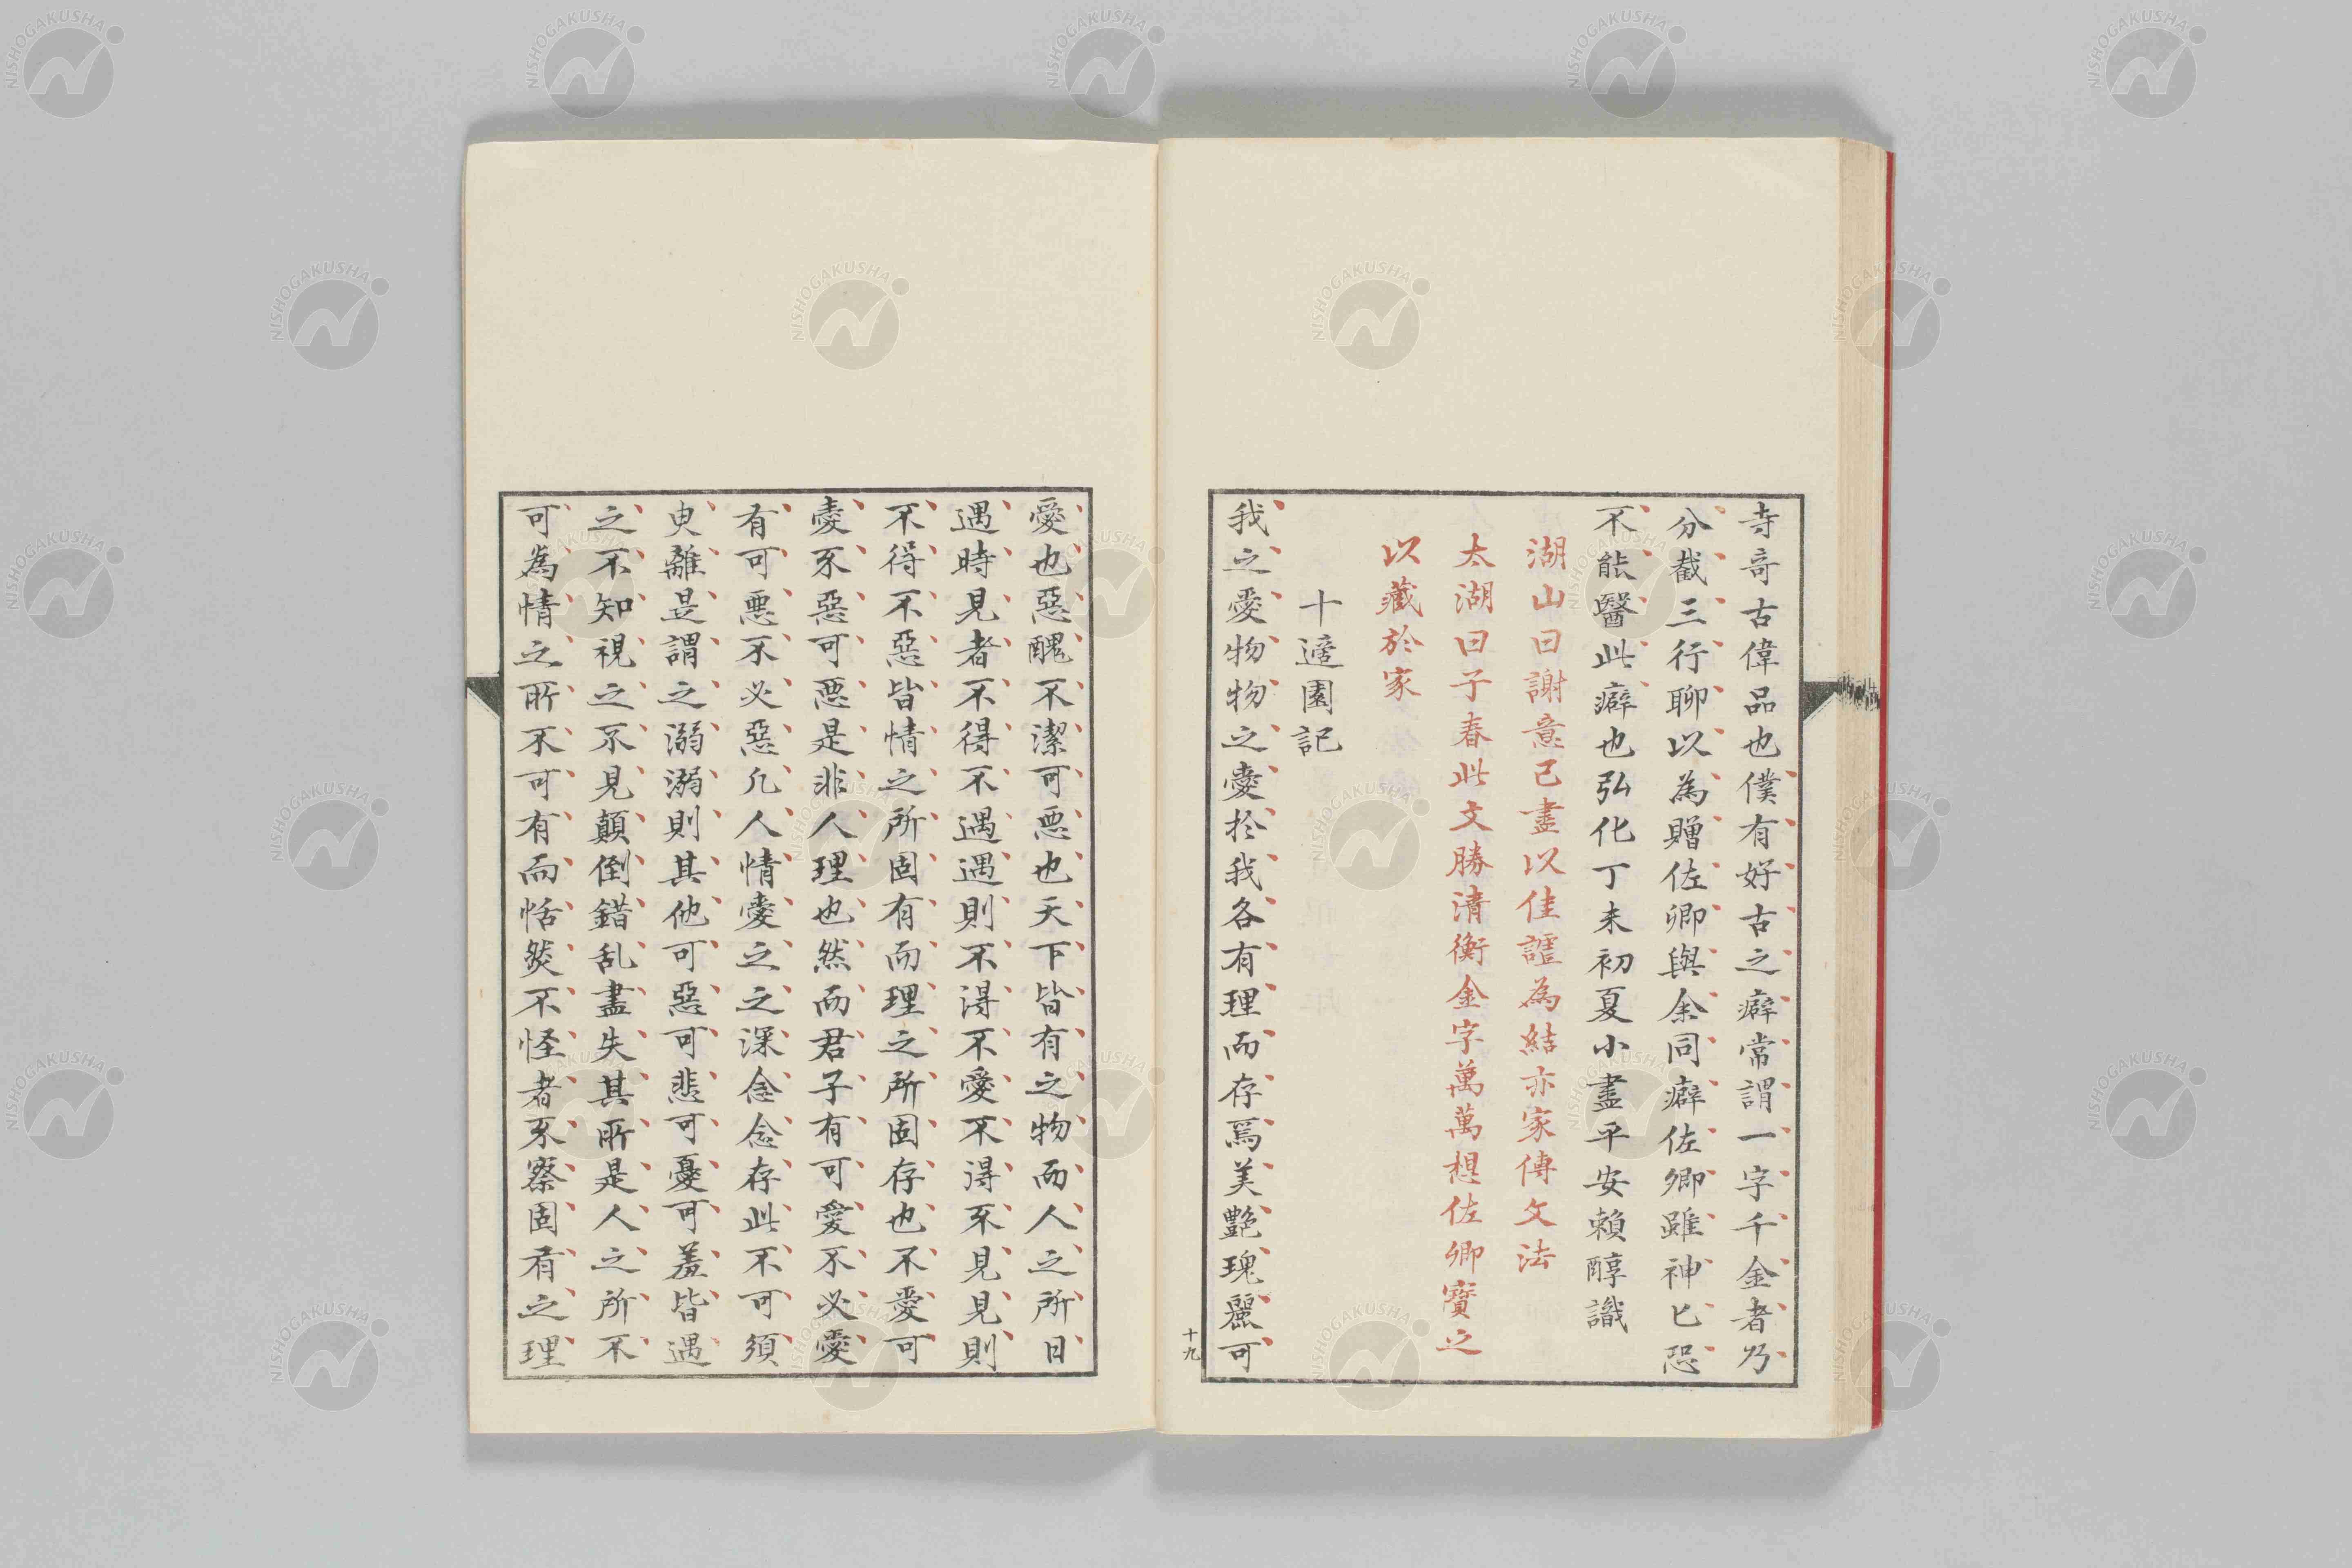 寺奇古偉品也僕有好古之癖常謂一字千金者乃
分截三行聊以為贈佐卿與余同癖佐卿雖神匕恐
不能醫此癖也弘化丁未初夏小盡平安賴醇識
湖山曰謝意已盡以佳謔為結亦家傳文法
太湖曰子春此文勝清衡金字萬萬想佐卿寶之
以藏於家
十適園記
我之愛物物之愛於我各有理而存焉美艷瑰麗可
十九
愛也惡醜不潔可惡也天下皆有之物而人之所日
遇時見者不得不遇遇則不得不愛不得不見見則
不得不惡皆情之所固有而理之所固存也不愛可
愛不惡可惡是非人理也然而君子有可愛不必愛
有可惡不必惡凡人情愛之之深念念存此不可須
臾離是謂之溺溺則其他可惡可悲可憂可羞皆遇
之不知視之不見顛倒錯乱盡失其所是人之所不
可為情之所不可有而恬然不怪者不察固有之理
NISHOGAKUSHA